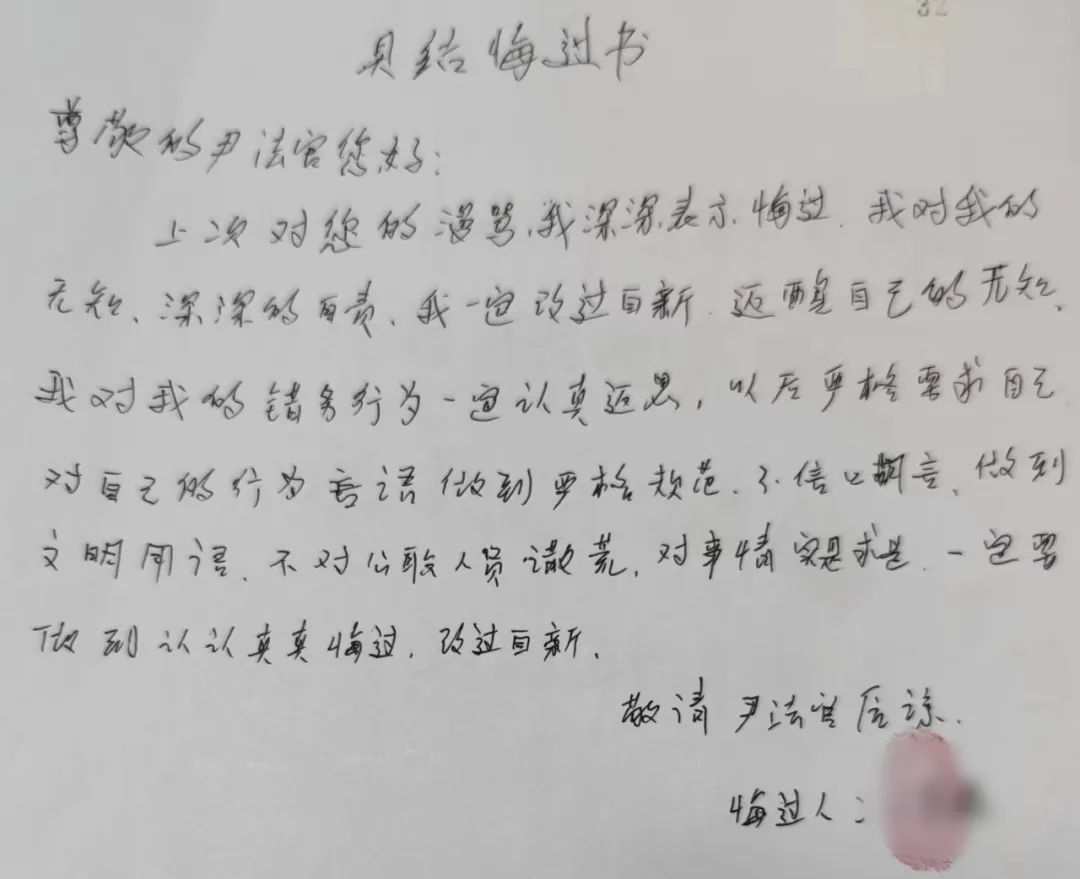 32
具结悔过书
尊敬的尹法官您好:
上次对您的漫骂,我深深表示悔过.我对我的
无知、深深的自责、我一定改过自新.迈醒自己的无知.
我对我的错务行为一定认真迈思,以后严格要求自己
对自己的行为言语做到严格规范.不信口胡言、做到
文明用语、不对公职人员撒荒,对事情实是求是.一定要
做到认认真真悔过.改过自新.
敬请尹法官原谅.
悔过人: